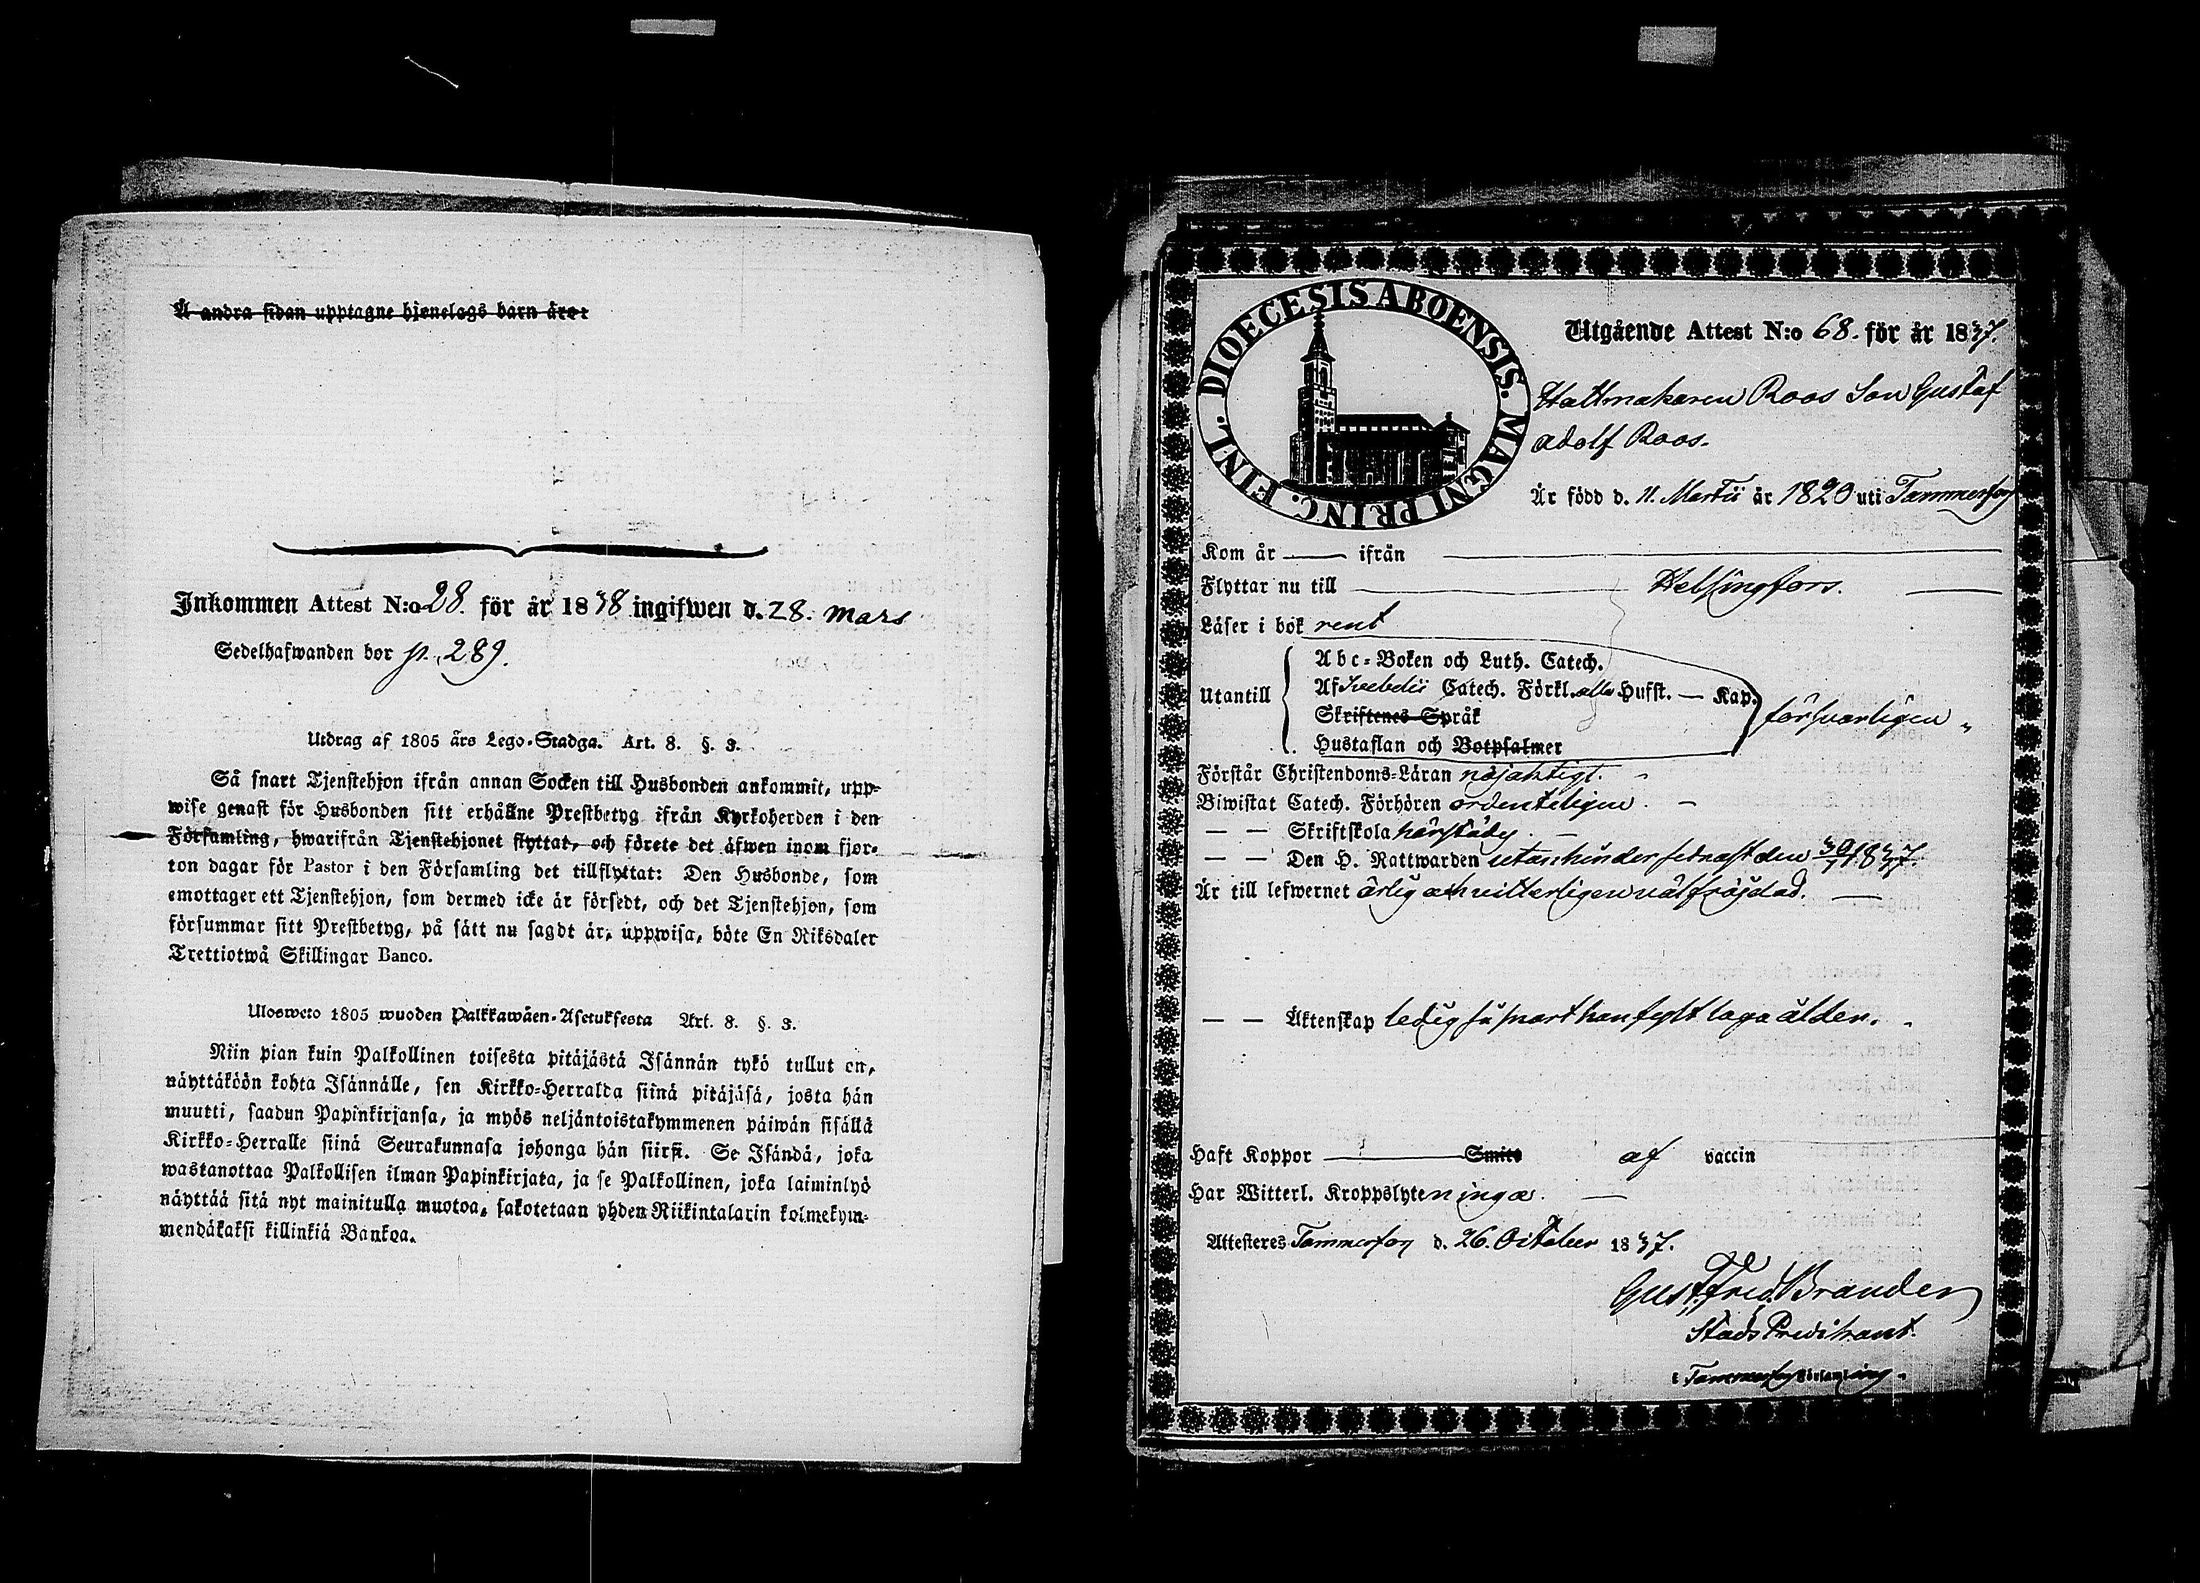 Å andra sidan upptagne hjonelags barn äro:
Inkommen Attest N:o 28. för år 1838 ingifwen d. 28. mars
Sedelhafwanden bor p. 289.
Utdrag af 1805 års Lego-Stadga. Art. 8. §. 3.
Så snart Tjenstehjon ifrån annan Socken till Husbonden ankommit, upp-
wise genast för Husbonden sitt erhållne Prestbetyg ifrån Kyrkoherden i den
Församling, hwarifrån Tjenstehjonet flyttat, och förete det äfwen inom fjor-
ton dagar för Pastor i den Församling det tillflyttat: Den Husbonde, som
emottager ett Tjenstehjon, som dermed icke är försedt, och det Tjenstehjon, som
försummar sitt Prestbetyg, på sätt nu sagdt är, uppwisa, böte En Riksdaler
Trettiotwå Skillingar Banco.
Ulosweto 1805 wuoden Palkkawäen-Asetuksesta Art. 8. §. 3.
Niin pian kuin Palkollinen toisesta pitäjästä Isännän tykö tullut on,
näyttäköön kohta Isännälle, sen Kirkko-Herralda siinä pitäjäsä, josta hän
muutti, saadun Papinkirjansa, ja myös neljäntoistakymmenen päiwän sisällä
Kirkko-Herralle siinä Seurakunnasa johonga hän siirsi. Se Isändä, joka
wastanottaa Palkollisen ilman Papinkirjata, ja se Palkollinen, joka laiminlyö
näyttää sitä nyt mainitulla muotoa, sakotetaan yhden Riikintalarin kolmekym-
mendäkaksi killinkiä Bankoa.
DIOECESIS ABOENSIS. MAGNI PRINC. FINL.
Utgående Attest N:o 68. för år 1837.
Hattmakaren Roos Son Gustaf
Adolf Roos.
Är född d. 11. Martii år 1820 uti Tammerfors
Kom år — ifrån —
Flyttar nu till — Helsingfors. —
Läser i bok rent
Utantill
Abc-Boken och Luth. Catech.
Af Svebelii Catech. Förkl. alla Hufst. — Kap.
Skriftenes Språk
Hustaflan och Botpsalmer
försvarligen
Förstår Christendoms-Läran nöjaktigt. -
Biwistat Catech. Förhören ordenteligen. —
— — Skriftskola härstädes. —
— — Den H. Nattwarden utan hinder sednast den 30/7 1837.
Är till lefwernet ärlig och vitterligen välfräjdad. —
— — Äktenskap ledig så snart han fylt laga ålder. -
Haft Koppor — Smitt af vaccin
Har Witterl. Kroppslyten inga. —
Attesteres Tammerfors d. 26. October 1837.
Gust. Fred. Brander
Stads Predikant.
i Tammerfors Församling.